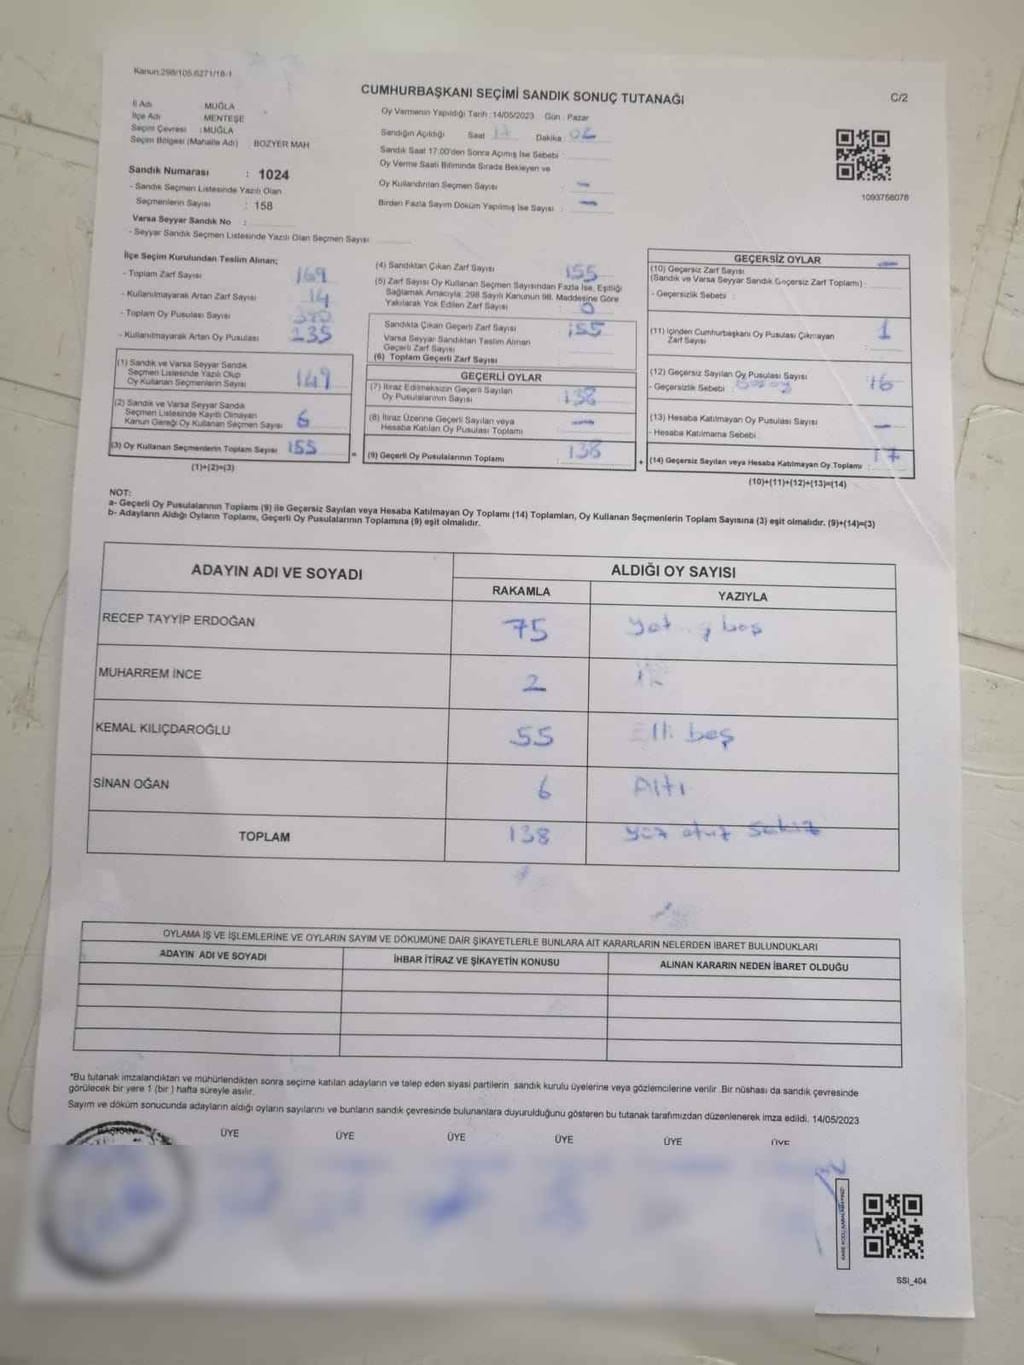 Kanun:298/105,6271/18-1
CUMHURBAŞKANI SEÇİMİ SANDIK SONUÇ TUTANAĞI
C/2
İl Adı MUĞLA
İlçe Adı MENTEŞE
Seçim Çevresi : MUĞLA
Seçim Bölgesi (Mahalle Adı) BOZYER MAH
Sandık Numarası : 1024
- Sandık Seçmen Listesinde Yazılı Olan
Seçmenlerin Sayısı : 158
Varsa Seyyar Sandık No :
- Seyyar Sandık Seçmen Listesinde Yazılı Olan Seçmen Sayısı
Oy Vermenin Yapıldığı Tarih : 14/05/2023 Gün : Pazar
Sandığın Açıldığı Saat 17 Dakika
Sandık Saat 17:00'den Sonra Açımış İse Sebebi
Oy Verme Saati Bitiminde Sırada Bekleyen ve
Oy Kullandırılan Seçmen Sayısı : —
Birden Fazla Sayım Döküm Yapılmış İse Sayısı : —
1093758078
İlçe Seçim Kurulundan Teslim Alınan;
- Toplam Zarf Sayısı 169
- Kullanılmayarak Artan Zarf Sayısı 14
- Toplam Oy Pusulası Sayısı
- Kullanılmayarak Artan Oy Pusulası 235
(1) Sandık ve Varsa Seyyar Sandık
Seçmen Listesinde Yazılı Olup
Oy Kullanan Seçmenlerin Sayısı 149
(2) Sandık ve Varsa Seyyar Sandık
Seçmen Listesinde Kayıtlı Olmayan
Kanun Gereği Oy Kullanan Seçmen Sayısı 6
(3) Oy Kullanan Seçmenlerin Toplam Sayısı 155
(1)+(2)=(3)
(4) Sandıktan Çıkan Zarf Sayısı 155
(5) Zarf Sayısı Oy Kullanan Seçmen Sayısından Fazla İse, Eşitliği
Sağlamak Amacıyla; 298 Sayılı Kanunun 98. Maddesine Göre
Yakılarak Yok Edilen Zarf Sayısı : 0
Sandıkta Çıkan Geçerli Zarf Sayısı : 155
Varsa Seyyar Sandıktan Teslim Alınan
Geçerli Zarf Sayısı
(6) Toplam Geçerli Zarf Sayısı
GEÇERLİ OYLAR
(7) İtiraz Edilmeksizin Geçerli Sayılan
Oy Pusulalarının Sayısı : 138
(8) İtiraz Üzerine Geçerli Sayılan veya
Hesaba Katılan Oy Pusulası Toplamı : —
(9) Geçerli Oy Pusulalarının Toplamı : 138
GEÇERSİZ OYLAR
(10) Geçersiz Zarf Sayısı —
(Sandık ve Varsa Seyyar Sandık Geçersiz Zarf Toplamı) :
- Geçersizlik Sebebi :
(11) İçinden Cumhurbaşkanı Oy Pusulası Çıkmayan
Zarf Sayısı : 1
(12) Geçersiz Sayılan Oy Pusulası Sayısı 16
- Geçersizlik Sebebi
(13) Hesaba Katılmayan Oy Pusulası Sayısı —
- Hesaba Katılmama Sebebi
(14) Geçersiz Sayılan veya Hesaba Katılmayan Oy Toplamı : 17
(10)+(11)+(12)+(13)=(14)
NOT:
a- Geçerli Oy Pusulalarının Toplamı (9) ile Geçersiz Sayılan veya Hesaba Katılmayan Oy Toplamı (14) Toplamları, Oy Kullanan Seçmenlerin Toplam Sayısına (3) eşit olmalıdır. (9)+(14)=(3)
b- Adayların Aldığı Oyların Toplamı, Geçerli Oy Pusulalarının Toplamına (9) eşit olmalıdır.
ADAYIN ADI VE SOYADI
ALDIĞI OY SAYISI
RAKAMLA YAZIYLA
RECEP TAYYİP ERDOĞAN 75 beş
MUHARREM İNCE 2
KEMAL KILIÇDAROĞLU 55 Elli beş
SİNAN OĞAN 6 Altı
TOPLAM 138 yüz otuz sekiz
OYLAMA İŞ VE İŞLEMLERİNE VE OYLARIN SAYIM VE DÖKÜMÜNE DAİR ŞİKAYETLERLE BUNLARA AİT KARARLARIN NELERDEN İBARET BULUNDUKLARI
ADAYIN ADI VE SOYADI İHBAR İTİRAZ VE ŞİKAYETİN KONUSU ALINAN KARARIN NEDEN İBARET OLDUĞU
*Bu tutanak imzalandıktan ve mühürlendikten sonra seçime katılan adayların ve talep eden siyasi partilerin sandık kurulu üyelerine veya gözlemcilerine verilir. Bir nüshası da sandık çevresinde
görülecek bir yere 1 (bir ) hafta süreyle asılır.
Sayım ve döküm sonucunda adayların aldığı oyların sayılarını ve bunların sandık çevresinde bulunanlara duyurulduğunu gösteren bu tutanak tarafımızdan düzenlenerek imza edildi. 14/05/2023
BAŞKAN ÜYE ÜYE ÜYE ÜYE ÜYE ÜYE
SSI_404